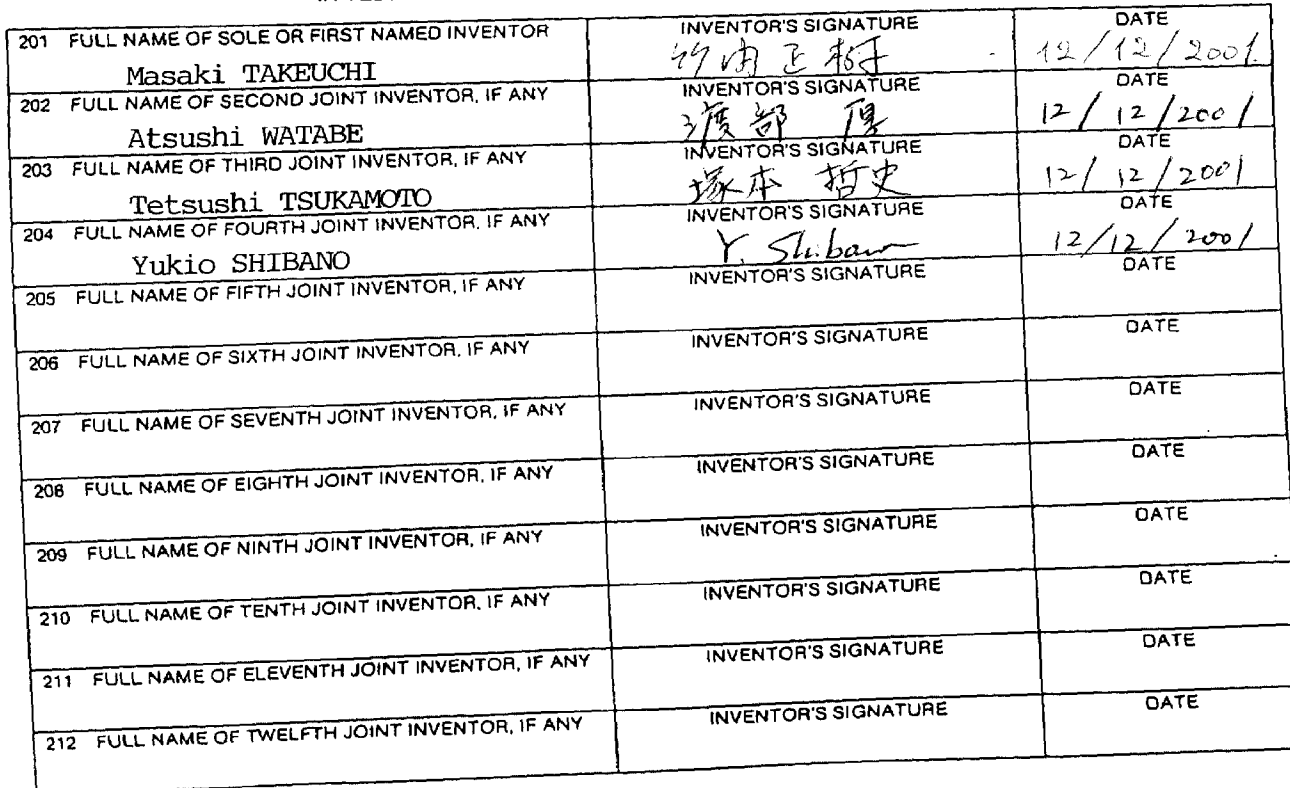 201 FULL NAME OF SOLE OR FIRST NAMED INVENTOR INVENTOR'S SIGNATURE DATE
Masaki TAKEUCHI 竹内正樹 12/12/2001
202 FULL NAME OF SECOND JOINT INVENTOR, IF ANY INVENTOR'S SIGNATURE DATE
Atsushi WATABE 渡部 厚 12/12/2001
203 FULL NAME OF THIRD JOINT INVENTOR, IF ANY INVENTOR'S SIGNATURE DATE
Tetsushi TSUKAMOTO 塚本 哲史 12/12/2001
204 FULL NAME OF FOURTH JOINT INVENTOR, IF ANY INVENTOR'S SIGNATURE DATE
Yukio SHIBANO Y. Shibano 12/12/2001
205 FULL NAME OF FIFTH JOINT INVENTOR, IF ANY INVENTOR'S SIGNATURE DATE
206 FULL NAME OF SIXTH JOINT INVENTOR, IF ANY INVENTOR'S SIGNATURE DATE
207 FULL NAME OF SEVENTH JOINT INVENTOR, IF ANY INVENTOR'S SIGNATURE DATE
208 FULL NAME OF EIGHTH JOINT INVENTOR, IF ANY INVENTOR'S SIGNATURE DATE
209 FULL NAME OF NINTH JOINT INVENTOR, IF ANY INVENTOR'S SIGNATURE DATE
210 FULL NAME OF TENTH JOINT INVENTOR, IF ANY INVENTOR'S SIGNATURE DATE
211 FULL NAME OF ELEVENTH JOINT INVENTOR, IF ANY INVENTOR'S SIGNATURE DATE
212 FULL NAME OF TWELFTH JOINT INVENTOR, IF ANY INVENTOR'S SIGNATURE DATE